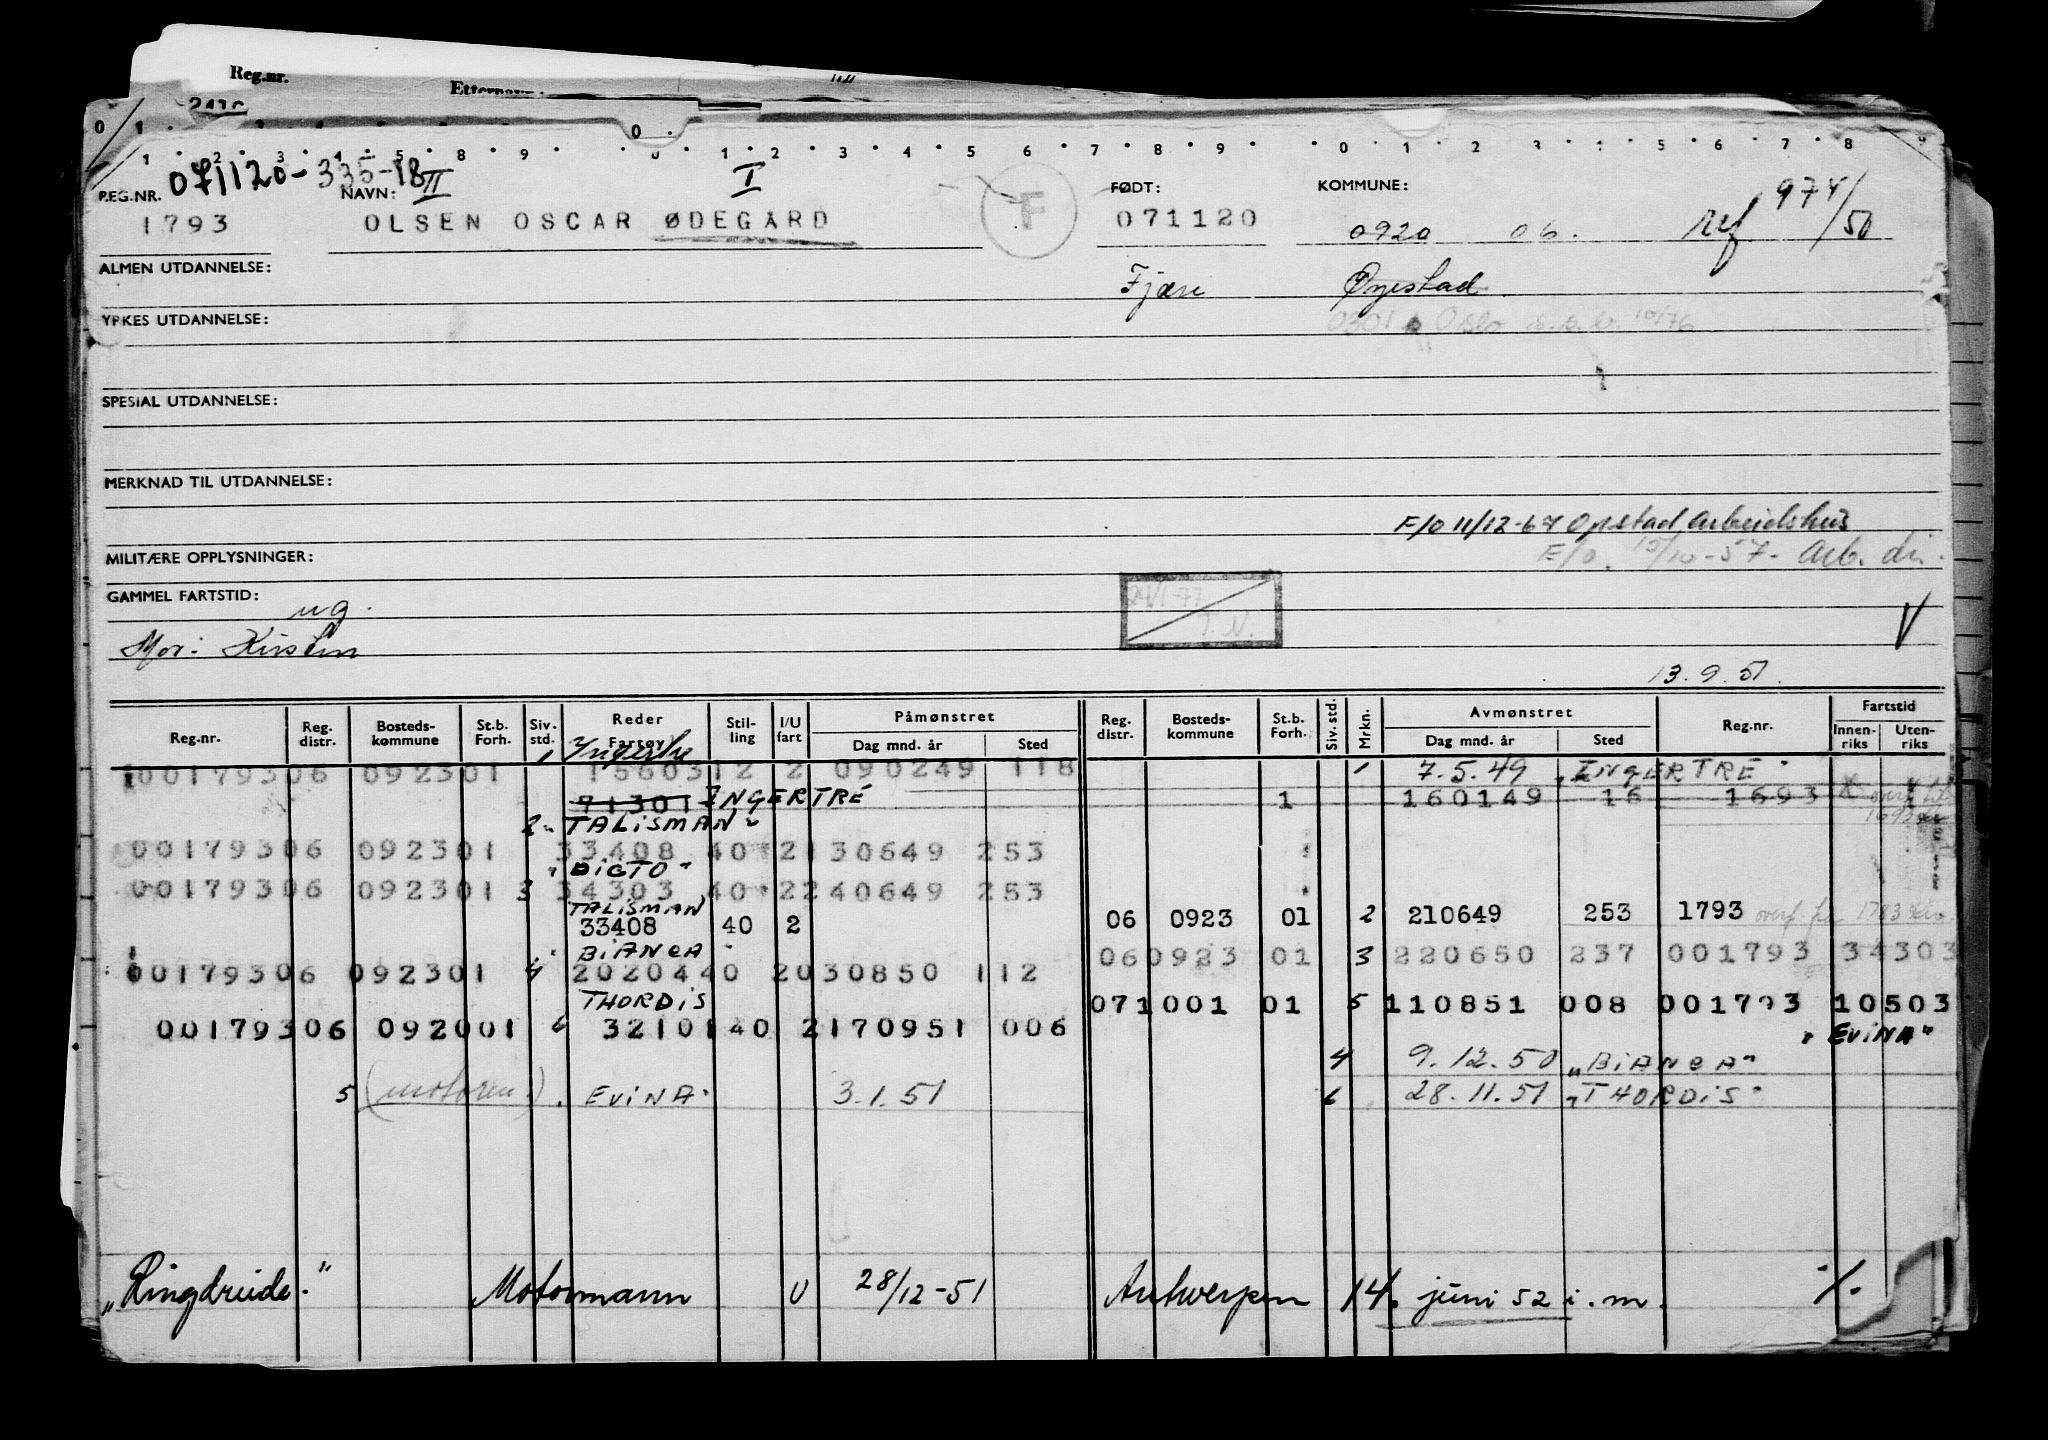 Reg.nr.
0 1
1 2 3 4 5 8 9 0 1 2 3 4 5 6 7 8 9 0 1 2 3 4 5 6 7 8 9
REG.NR. 071120-335-18 NAVN: II I F FØDT: KOMMUNE: ref 974/50
1793 OLSEN OSCAR ØDEGÅRD 071120 0920 06.
ALMEN UTDANNELSE: Fjære Øyestad
YRKES UTDANNELSE: 0301 Oslo 10/76
SPESIAL UTDANNELSE:
MERKNAD TIL UTDANNELSE:
F/O 11/12-67 Opstad Arbeidshus
MILITÆRE OPPLYSNINGER: E/O. 10/10-57- Arb. dir.
GAMMEL FARTSTID: ug.
Mor: Kirsten
13.9.51.
Reg.nr. Reg. distr. Bosteds-kommune St.b. Forh. Siv. std. Reder Fartøy Stil-ling I/U fart Påmønstret Dag mnd. år Sted Reg. distr. Bosteds-kommune St.b. Forh. Siv. std. Mrkn. Avmønstret Dag mnd. år Sted Reg.nr. Fartstid Innen-riks Uten-riks
00179306 092301 1 1560312 2 090249 118 1 7.5.49 "INGERTRE"
71301 INGERTRE 1 160149 16 1693
2 "TALISMAN"
00179306 092301 33408 40 2130649 253
"DIGTO"
00179306 092301 3 34303 40 2240649 253
TALISMAN
33408 40 2 06 0923 01 2 210649 253 1793 overf. fra
"BIANCA"
00179306 092301 4 2020440 2030850 112 060923 01 3 220650 237 001793 34303
THORDIS 071001 01 5 110851 008 001793 10503
00179306 092001 6 32101 40 2170951 006 "EVINA"
4 9.12.50 "BIANCA"
5 (motorm.) "EVINA" 3.1.51 6 28.11.51 "THORDIS"
"Ringdruide" Motormann U 28/12-51 Antwerpen 14. juni 52 i.m. -/.